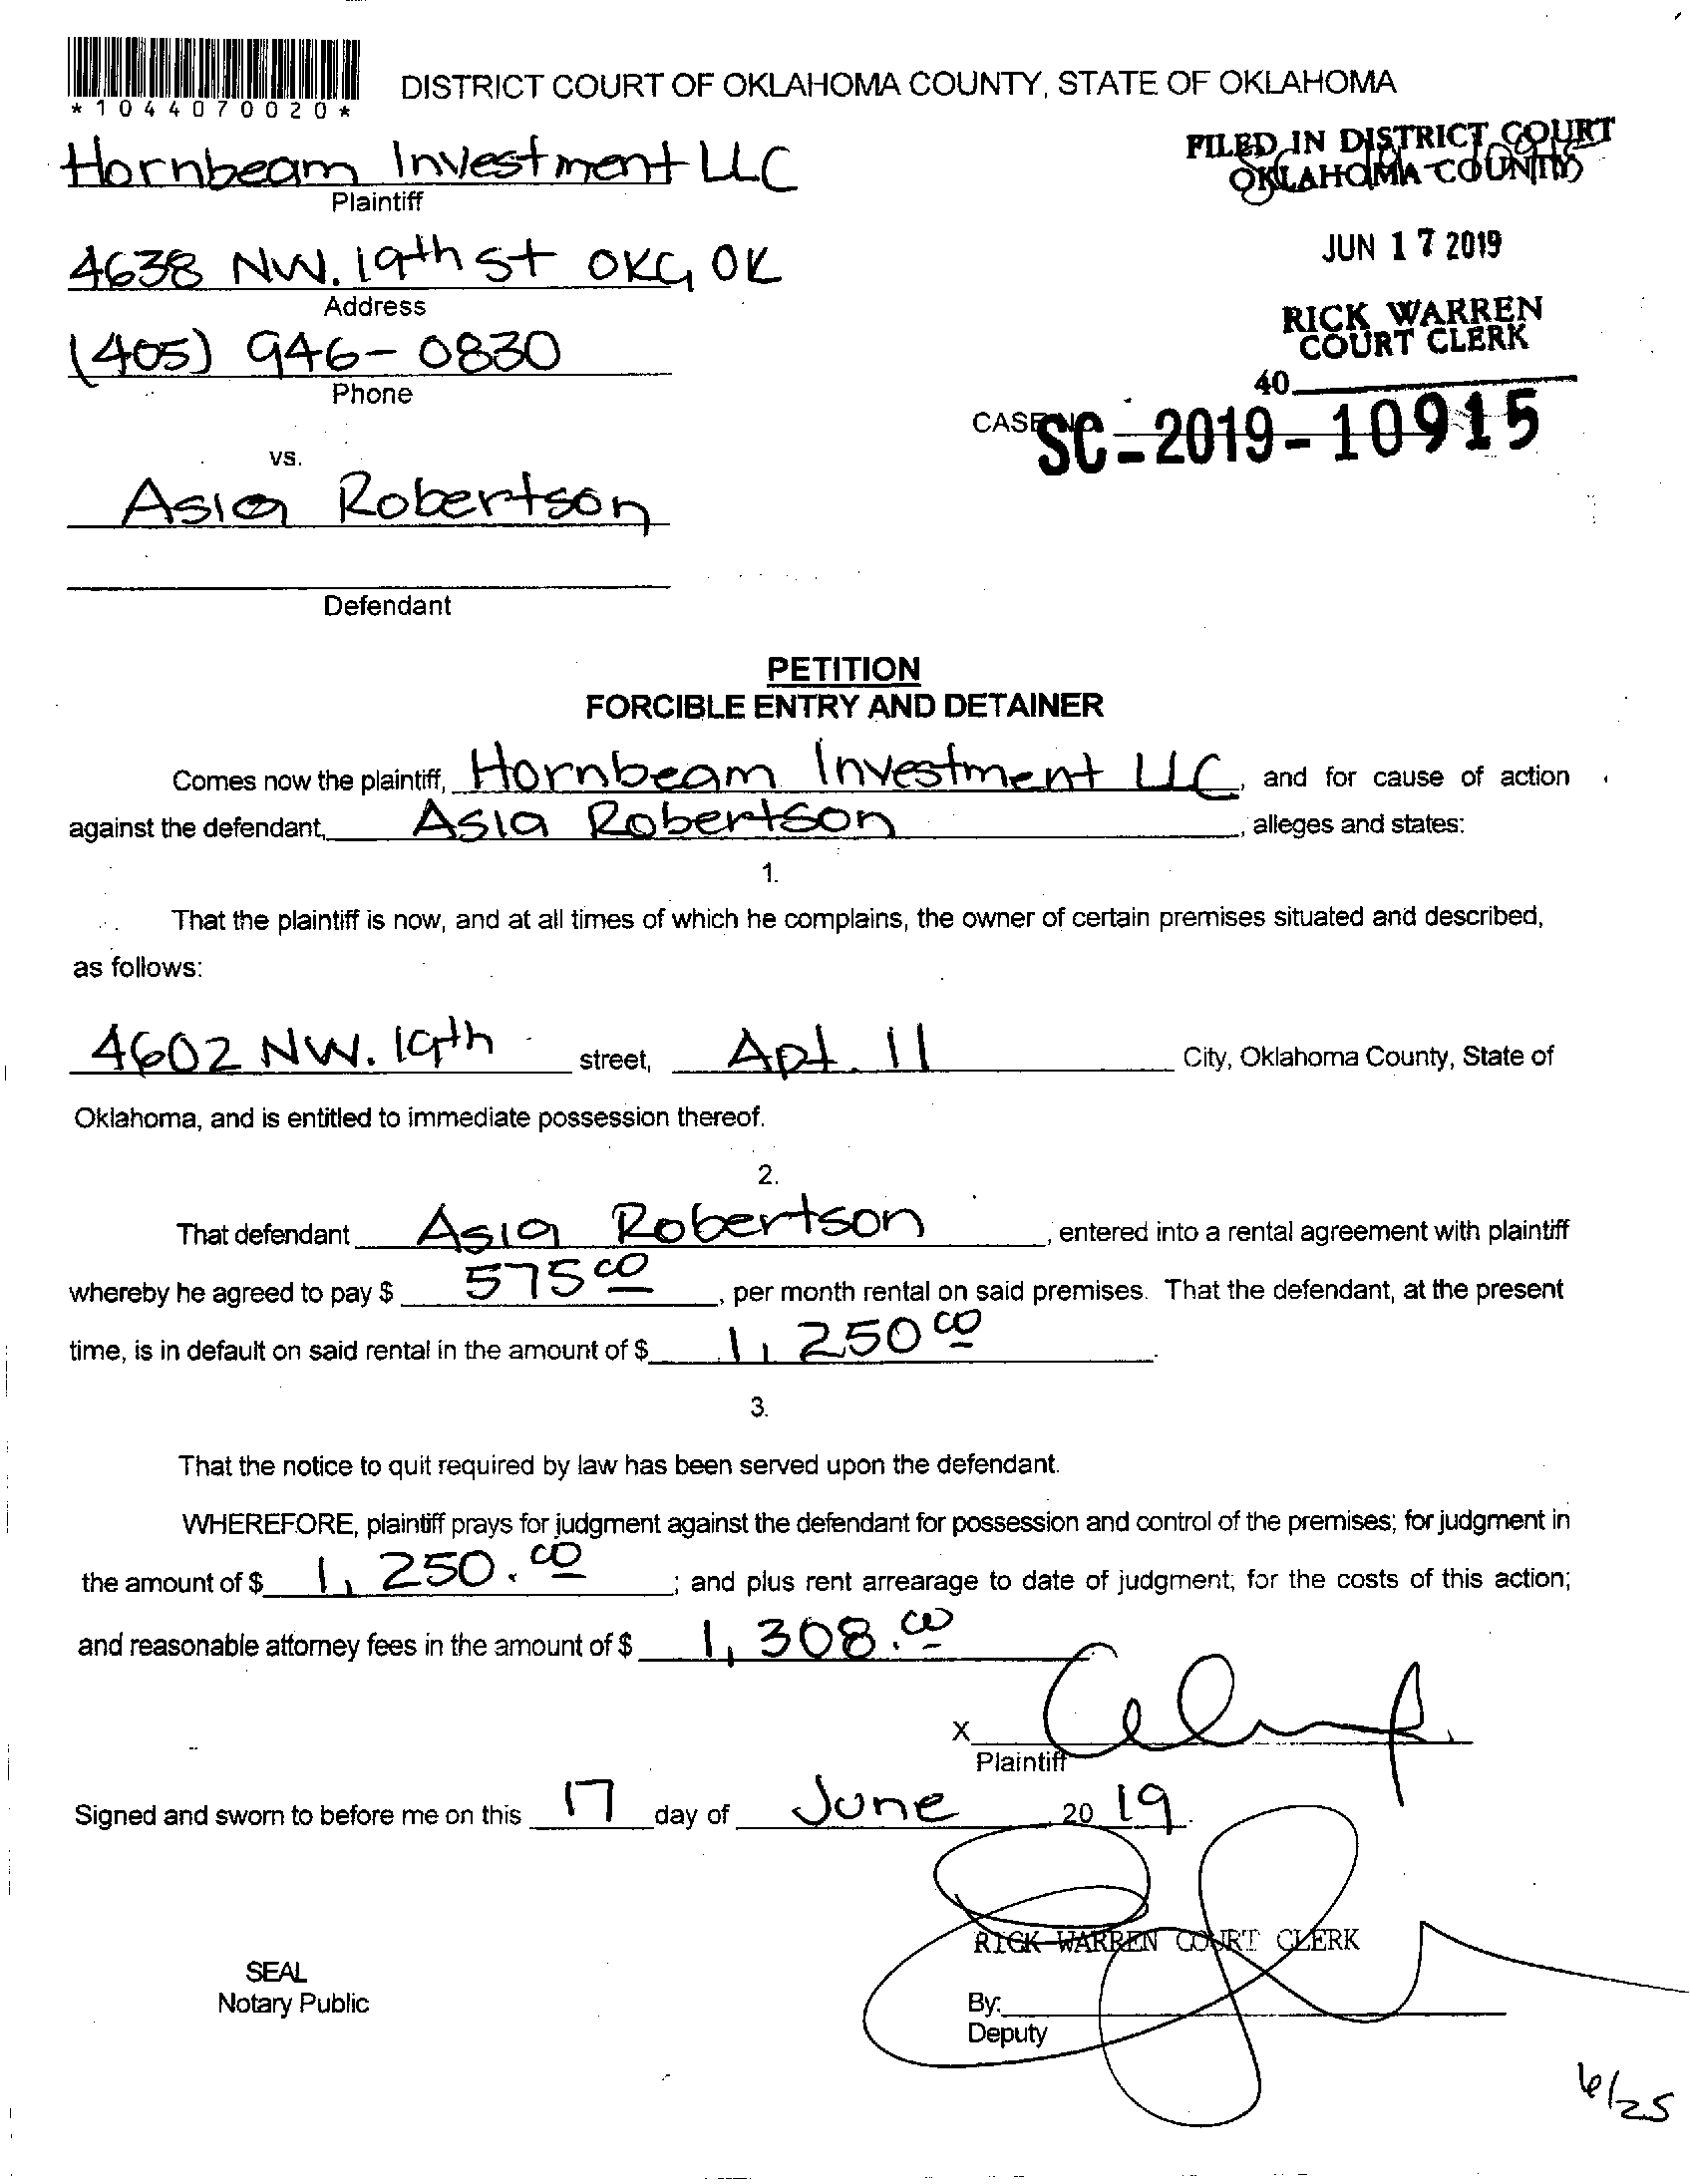 *1044070020*
DISTRICT COURT OF OKLAHOMA COUNTY, STATE OF OKLAHOMA
FILED IN DISTRICT COURT
OKLAHOMA COUNTY
Hornbeam Investment LLC
Plaintiff
JUN 17 2019
4638 NW. 19th St OKC, OK
Address
RICK WARREN
COURT CLERK
(405) 946-0830
Phone
40
CASE NO.
SC-2019-10915
vs.
Asia Robertson
Defendant
PETITION
FORCIBLE ENTRY AND DETAINER
Comes now the plaintiff, Hornbeam Investment LLC, and for cause of action
against the defendant, Asia Robertson, alleges and states:
1.
That the plaintiff is now, and at all times of which he complains, the owner of certain premises situated and described,
as follows:
4602 NW. 19th street, Apt. 11 City, Oklahoma County, State of
Oklahoma, and is entitled to immediate possession thereof.
2.
That defendant Asia Robertson, entered into a rental agreement with plaintiff
whereby he agreed to pay $ 575 00, per month rental on said premises. That the defendant, at the present
time, is in default on said rental in the amount of $ 1,250 00.
3.
That the notice to quit required by law has been served upon the defendant.
WHEREFORE, plaintiff prays for judgment against the defendant for possession and control of the premises; for judgment in
the amount of $ 1,250.00; and plus rent arrearage to date of judgment; for the costs of this action;
and reasonable attorney fees in the amount of $ 1,308.00
X
Plaintiff
Signed and sworn to before me on this 17 day of June 2019.
RICK WARREN COURT CLERK
SEAL
Notary Public
By:
Deputy
6/25